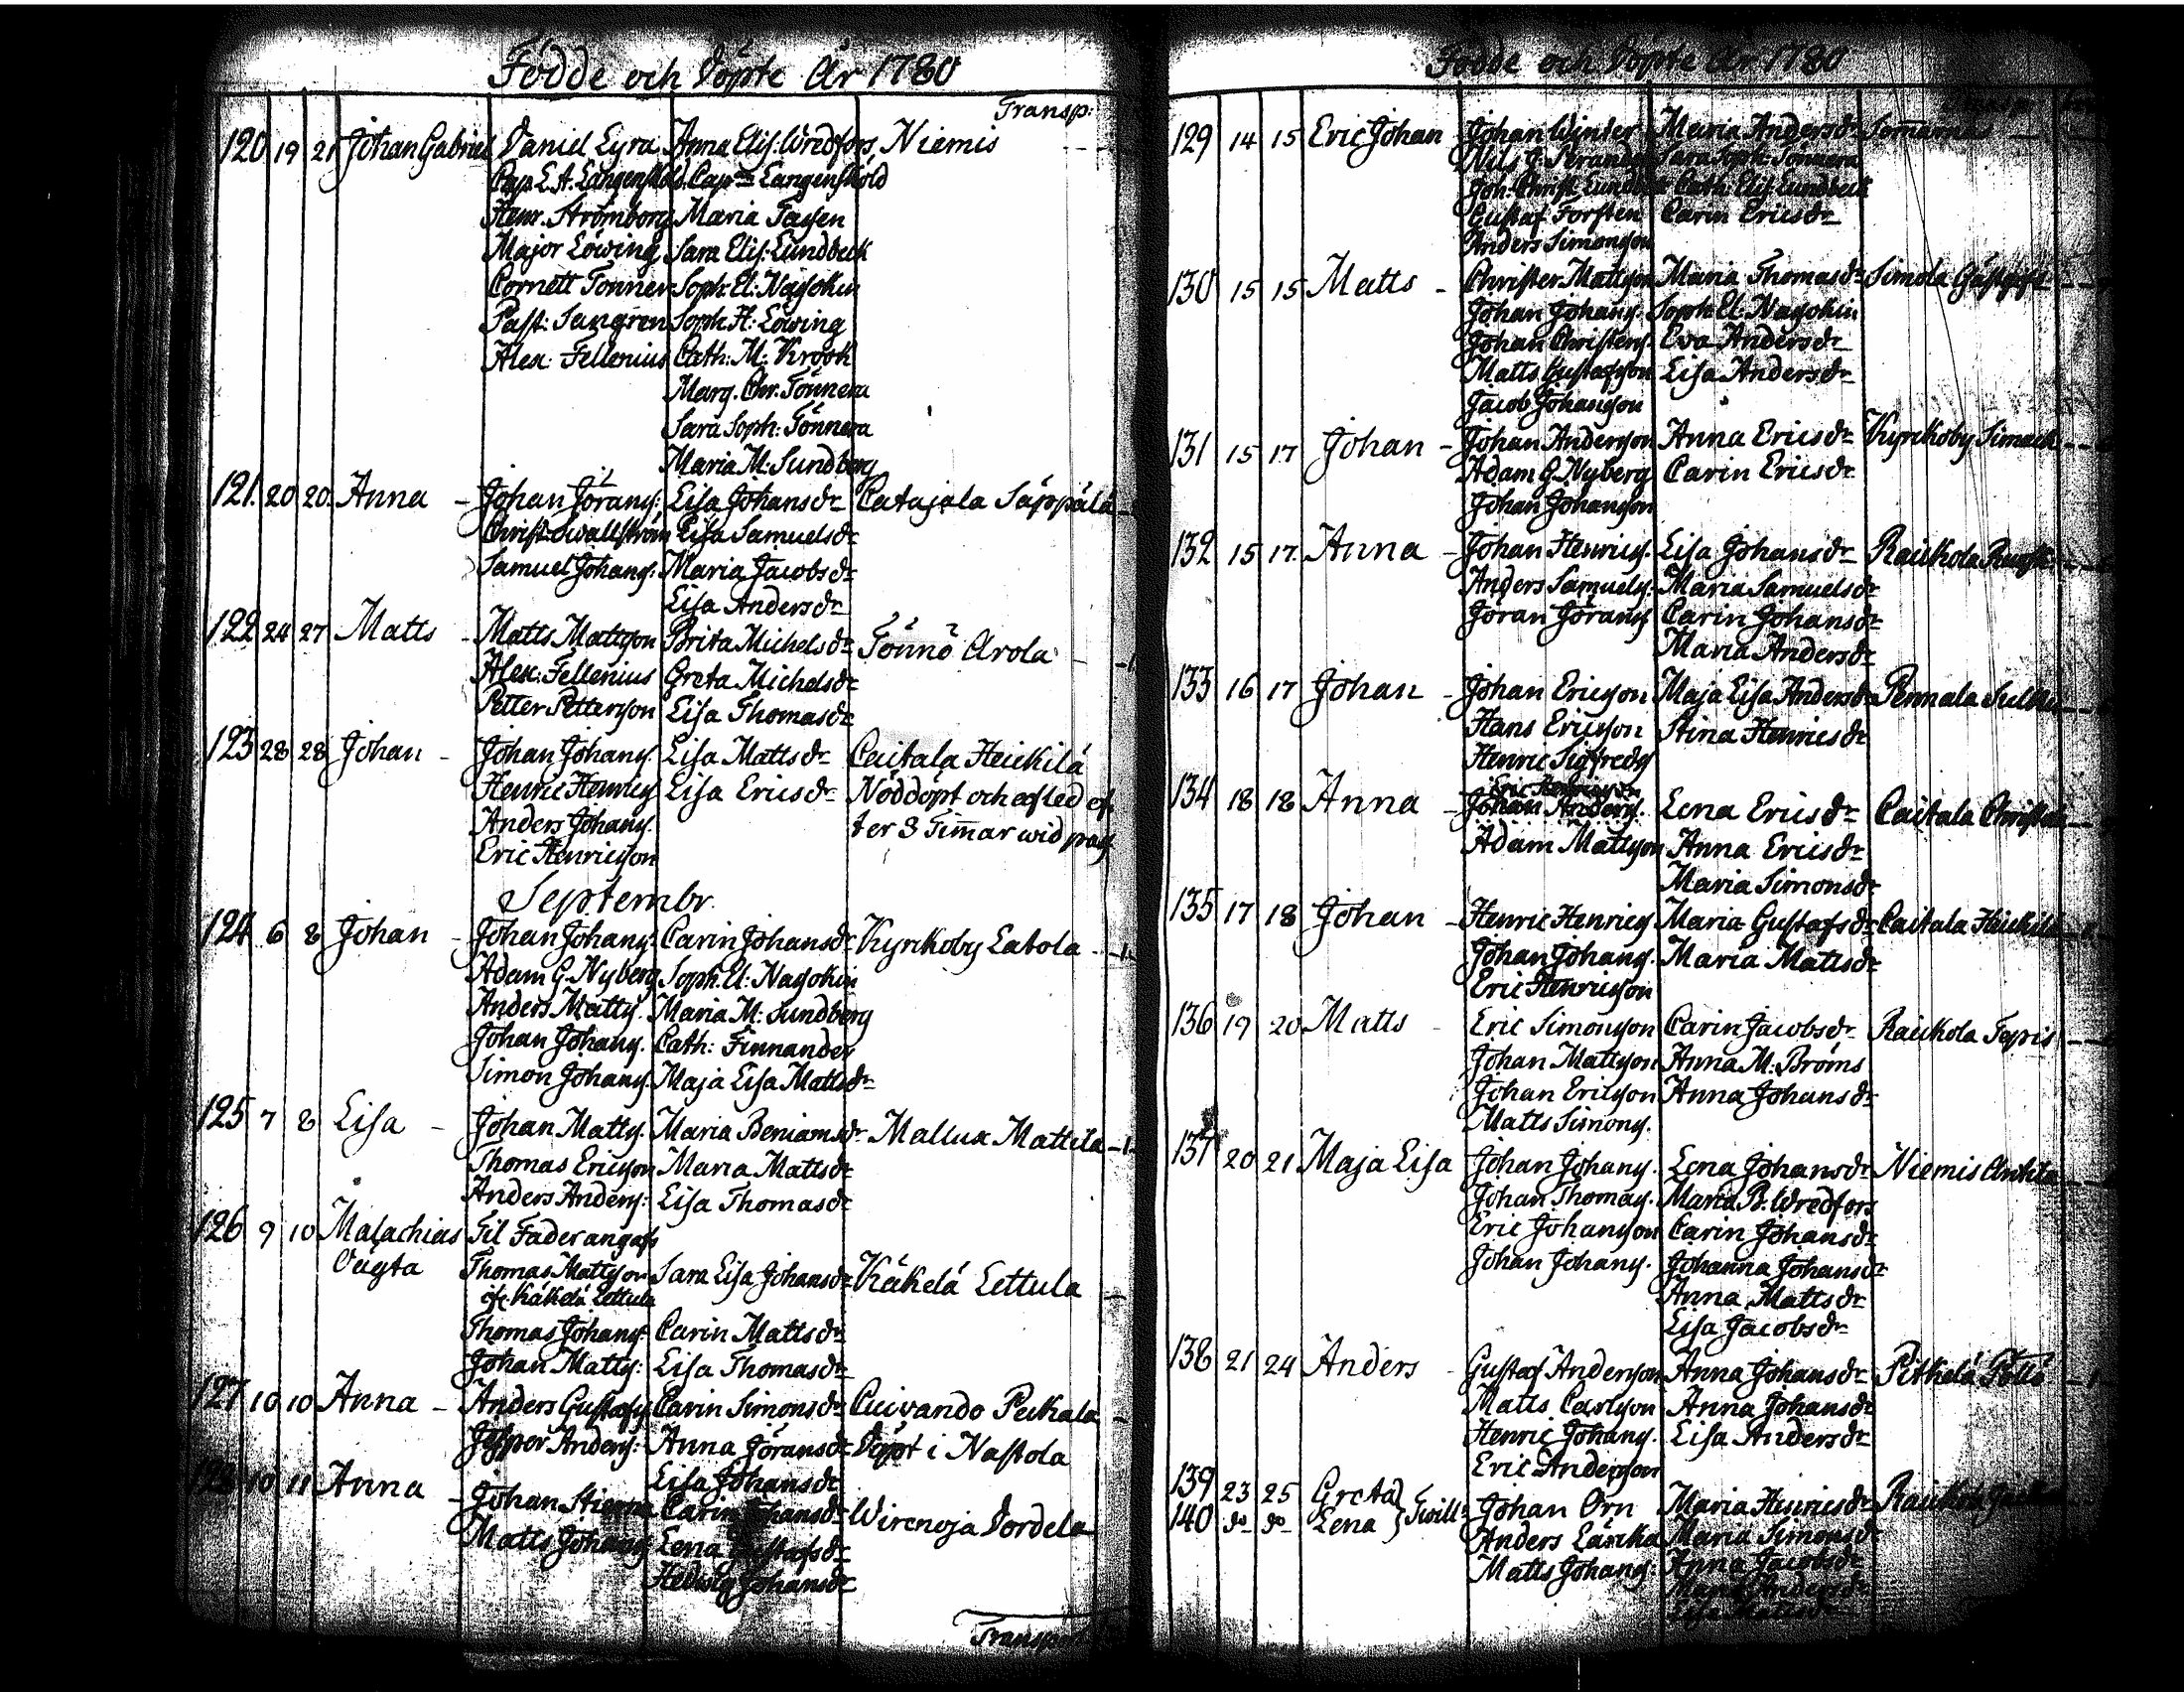 Födde och Döpte År 1780
Transp:
120 19 21 Johan Gabriel Daniel Lyra Anna Elis: Wredfors Niemis
Cap. L. A. Langenskiöld Capsk Langenskiöld
Henr. Strömborg Maria Tasen
Major Löwing Sara Elis: Lundbeck
Cornett Tonner Soph: El: Nasokin
Past: Sangren Soph: H: Löwing
Alex: Fellenius Cath: M: Krook
Marg. Chr. Tönnera
Sara Soph: Tönnera
Maria M: Sundberg
121. 20 20. Anna - Johan Jörans: Lisa Johansdr Catajala Säppälä
Christ: Swallström Lisa Samuelsdr
Samuel Johans: Maria Jacobsdr
Lisa Andersdr
122 24 27 Matts - Matts Mattsson Brita Michelsdr Tönnö Arola - -1
Alex: Fellenius Greta Michelsdr
Petter Pettersson Lisa Thomasdr
123 28 28 Johan - Johan Johans. Lisa Mattsdr Caitala Heickilä
Henric Henrics Lisa Ericsdr Nöddöpt och afled ef
Anders Johans. ter 3 Timar wid pass
Eric Henricsson
Septembr.
124 6 8 Johan - Johan Johans: Carin Johansdr Kyrckoby Latola -1-
Adam G. Nyberg Soph. El: Nasokin
Anders Matts. Maria M: Sundberg
Johan Johans. Cath: Finnander
Simon Johans. Maja Lisa Mattsdr
125 7 8 Lisa - Johan Matts. Maria Beniamsdr Mallux Mattila -1-
Thomas Ericsson Maria Mattsdr
Anders Anders: Lisa Thomasdr
126 9 10 Malachias Til Fader angafs
Oägta Thomas Mattsson Sara Lisa Johansdr Käkelä Lettula
ifr. Käkelä Lettula
Thomas Johans. Carin Mattsdr
Johan Matts: Lisa Thomasdr
127 10 10 Anna - Anders Gustafs. Carin Simonsdr Cuivando Peckala
Jesper Anders: Anna Jöransdr Döpt i Nastola
Lisa Johansdr
128 10 11 Anna - Johan Carin Johansdr Wirenoja Dordela
Matts Johans Lena Gustafsdr
Hedwig Johansdr
Transport
Födde och Döpte År 1780
129 14 15 Eric Johan Johan Winter Maria Andersdr
Sara Soph: Tönnera
Joh: Christ: Lundbeck Cath: Elis: Lundbeck
Gustaf Forsten Carin Ericsdr
Anders Simonsson
130 15 15 Matts - Christer Mattsson Maria Thomasdr Simola
Johan Johans. Soph: El: Nasokin
Johan Christers. Eva Andersdr
Matts Gustafsson Lisa Andersdr
Jacob Johansson
131 15 17 Johan - Johan Andersson Anna Ericsdr Kyrckoby
Adam G. Nyberg Carin Ericsdr
Johan Johansson
132 15 17. Anna - Johan Henrics. Lisa Johansdr Raickola
Anders Samuels: Maria Samuelsdr
Jöran Jörans Carin Johansdr
Maria Andersdr
133 16 17 Johan - Johan Ericsson Maja Lisa Andersdr Pennala
Hans Ericsson Stina Henricsdr
Henric Sigfreds
Eric Henricsson
134 18 18 Anna - Johan Anders. Lena Ericsdr Caitala
Adam Mattsson Anna Ericsdr
Maria Simonsdr
135 17 18 Johan - Henric Henrics Maria Gustafsdr Caitala Heickilä
Johan Johans. Maria Mattsdr
Eric Henricsson
136 19 20 Matts - Eric Simonsson Carin Jacobsdr Raickola Topris
Johan Mattsson Anna M: Broms
Johan Ericsson Anna Johansdr
Matts Simons.
137 20 21 Maja Lisa Johan Johans. Lena Johansdr Niemis
Johan Thomas. Maria B: Wredfors
Eric Johansson Carin Johansdr
Johan Johans. Johanna Johansdr
Anna Mattsdr
Lisa Jacobsdr
138 21 24 Anders - Gustaf Andersson Anna Johansdr Pitkelä
Matts Carlsson Anna Johansdr
Henric Johans. Lisa Andersdr
Eric Andersson
139 23 25 Greta
140 do do Lena } Twill: Johan Orn Maria Henricsdr Raickola
Anders Maria Simonsdr
Matts Johans: Anna Jacobsdr
Maria Andersdr
Lisa Mattsdr